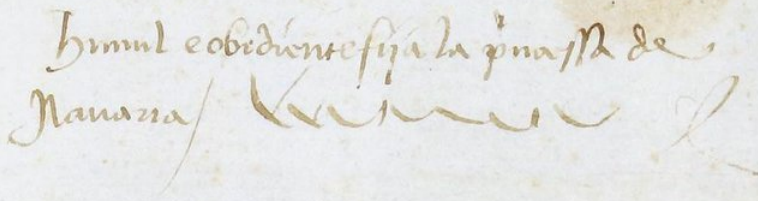 humil e obediente fija la p̃nçessa de
Navarra